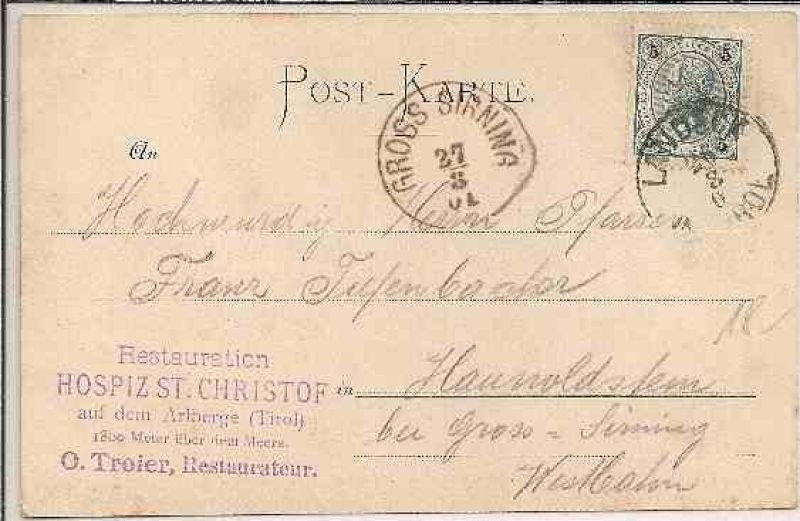 POST-KARTE.
5 5
5
GROSS SIRNING
27
3
01
LANDECK
An
Hochwürdig Herrn Pfarrer
Franz Tiefenbacher
Restauration
HOSPIZ ST. CHRISTOF
auf dem Arlberge (Tirol)
1800 Meter über dem Meere.
O. Troier, Restaurateur.
in Haunoldstein
bei Gross = Sirning
Westbahn